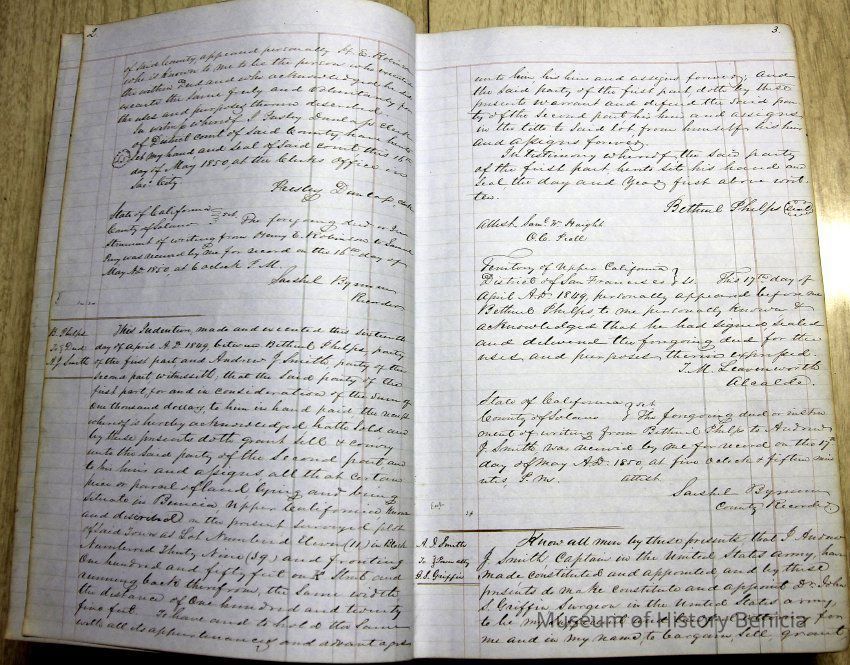 2
of said County, appeared personally H. E. Robinson
who is known to me to be the person who executed
the within Deed and who acknowledged he did
execute the same freely and voluntarily for
the uses and purposes therein described
In witness whereof I Presley Dunlap clerk
of District court of Said County have hereunto
Set my hand and seal of said court this 16th
day of May 1850, at the Clerks office in
Sac. City.
Presley Dunlap, clk
State of California
County of Solano
The foregoing deed or In
strument of writing from Henry E. Robinson to
was received by me for record on the 16th day of
May AD 1850, at 6 oclock P.M.
Bynum
Recorder
B. Phelps
To Deed
A J Smith
This Indenture, made and executed this sixteenth
day of april A.D 1849, between Bethuel Phelps, party
of the first part and Andrew J. Smith, party of the
second part witnesseth, that the Said party of the
first part, for and in consideration of the sum of
One thousand dollars, to him in hand paid the receipt
whereof is hereby acknowledged hath Sold and
by these presents doth grant sell & convey
unto the Said party of the Second part and
to his heirs and assigns, all that certain
piece or parcel of land lying and being
situate in Benicia Upper California known
and described on the present Surveyed plot
of said Town as Lot Numbered Eleven (11) in Block
Numbered Thirty Nine (39) and fronting
One hundred and fifty feet on K Street and
running back therefrom, the Same width
the distance of One hundred and twenty
five feet. To have and to hold the Same
with all its appurtenances and advantages
3.
unto him his heirs and assigns forever; And
the Said party of the first part doth by these
presents warrant and defend the said par
ty of the Second part his heirs and assigns
in the title to Said lot from himself, his heirs
and assigns forever
In testimony whereof the said party
of the first part hunto sets his hand and
Seal the day and Year first above writ
ten.
Bethuel Phelps Seal
attest Saml W. Haight
Territory of Upper California
District of San Francisco } SS This 17th day of
April A.D. 1849, personally appeared before me
Bethuel Phelps to me personally known &
acknowledged that he had signed sealed
and delivered the foregoing deed for the
uses and purposes therein expressed.
T. M. Leavenworth
Alcalde.
State of California
County of Solano } The foregoing deed or instru
ment of writing from Bethuel Phelps to Andrew
J. Smith was received by me for record on the 17th
day of May A.D. 1850, at five oclock & fifteen min
utes, P.M. attest
Bynum
County Recorder
A. J. Smith
To } Power atty
J. S. Griffin
Know all men by these presents, that I Andrew
J. Smith Captain in the United States army, have
made constituted and appointed and by these
presents do make Constitute and appoint Dr John
S. Griffin Surgeon in the United States army,
to be my true for
me and in my name, to bargain, Sell, grant
Museum of History Benicia